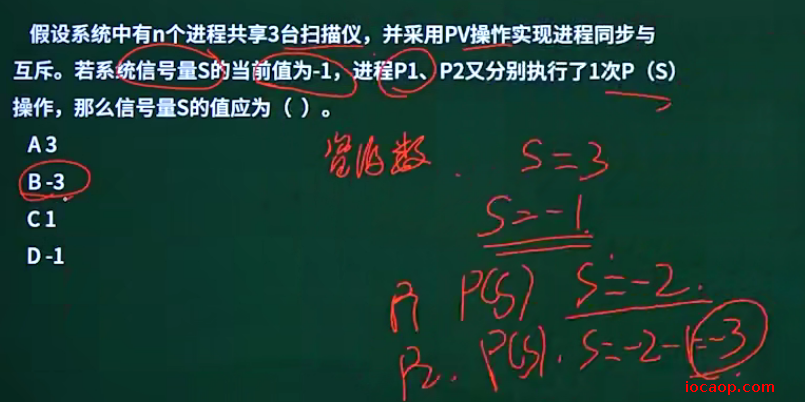 假设系统中有n个进程共享3台扫描仪，并采用PV操作实现进程同步与
互斥。若系统信号量S的当前值为-1，进程P1、P2又分别执行了1次P（S）
操作，那么信号量S的值应为（ ）。
A 3
B -3
C 1
D -1
资源数. S=3
S=-1.
P1 P(S) S=-2.
P2. P(S). S=-2-1=-3
iocaop.com